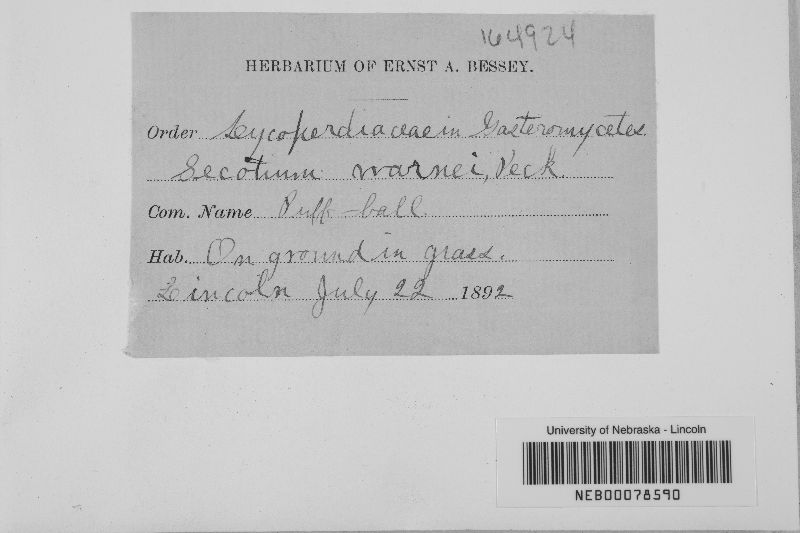 164924
HERBARIUM OF ERNST A. BESSEY.
Order Lycoperdiaceae in Gasteromycetes
Secotium warnei, Peck.
Com. Name Puff-ball
Hab. On ground in grass.
Lincoln July 22 1892
University of Nebraska - Lincoln
NEB00078590